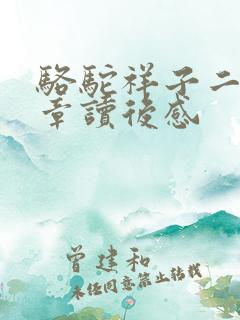 駱駝祥子二
章讀後感
曾建和
未經同意禁止轉載